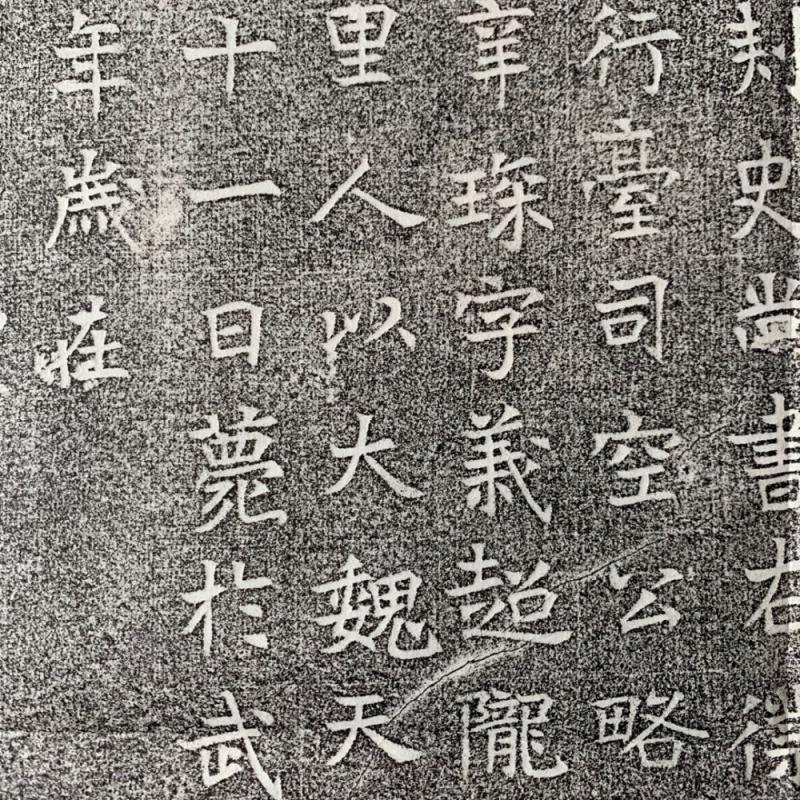 刺史尚書右
行臺司空公略
辛琛字義超隴
里人以大魏天
十一日薨於武
年歲莊